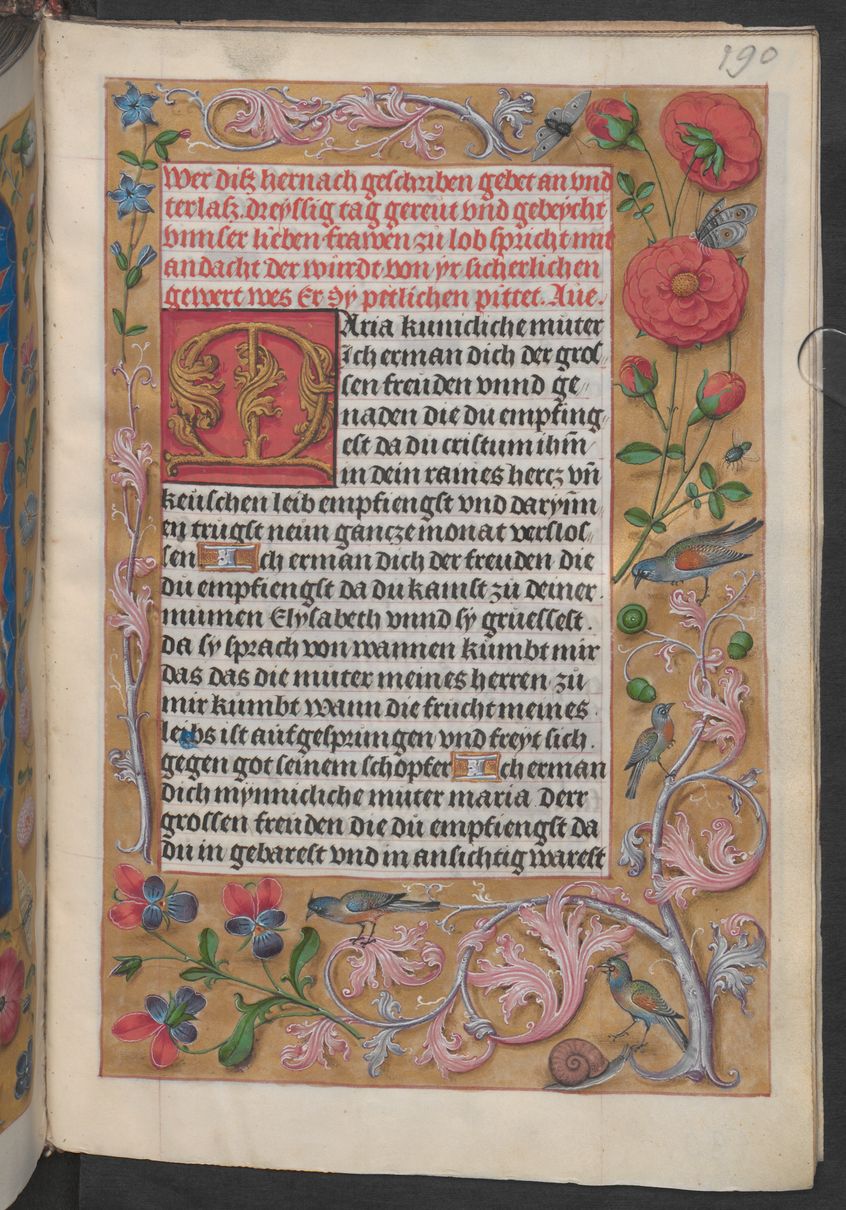 190
Wer diß hernach geschriben gebet an vnd
terlaß. dreyssig tag gereut vnd gebeycht
vnnser lieben frawen zů lob spricht mit
andacht der würdt von yr sicherlichen
gewert wes Er Sy petlichen pittet. Aue.
MAria kunicliche můter
Ich erman dich der gros„
sen freüden vnnd ge„
naden die dü empfing„
est da dü cristum ihm̄
in dein raines hercz vn̄
keüschen leib empfiengst vnd daryn̄n
en trügst neün gancze monat verslos„
sen Ich erman dich der freüden die
dü empfiengst da dü kamst zů deiner.
můmen Elysabeth vnnd sy grüessest.
da sy sprach von wannen kümbt mir
das das die můter meines herren zů
mir kümbt wann die frücht meines.
leibs ist aüfgesprüngen vnd freyt sich.
gegen got seinem schöpfer Ich erman
dich mynnicliche můter maria derr
grossen freüden die dü empfiengst da
Dü in gebarest vnd in ansichtig warest